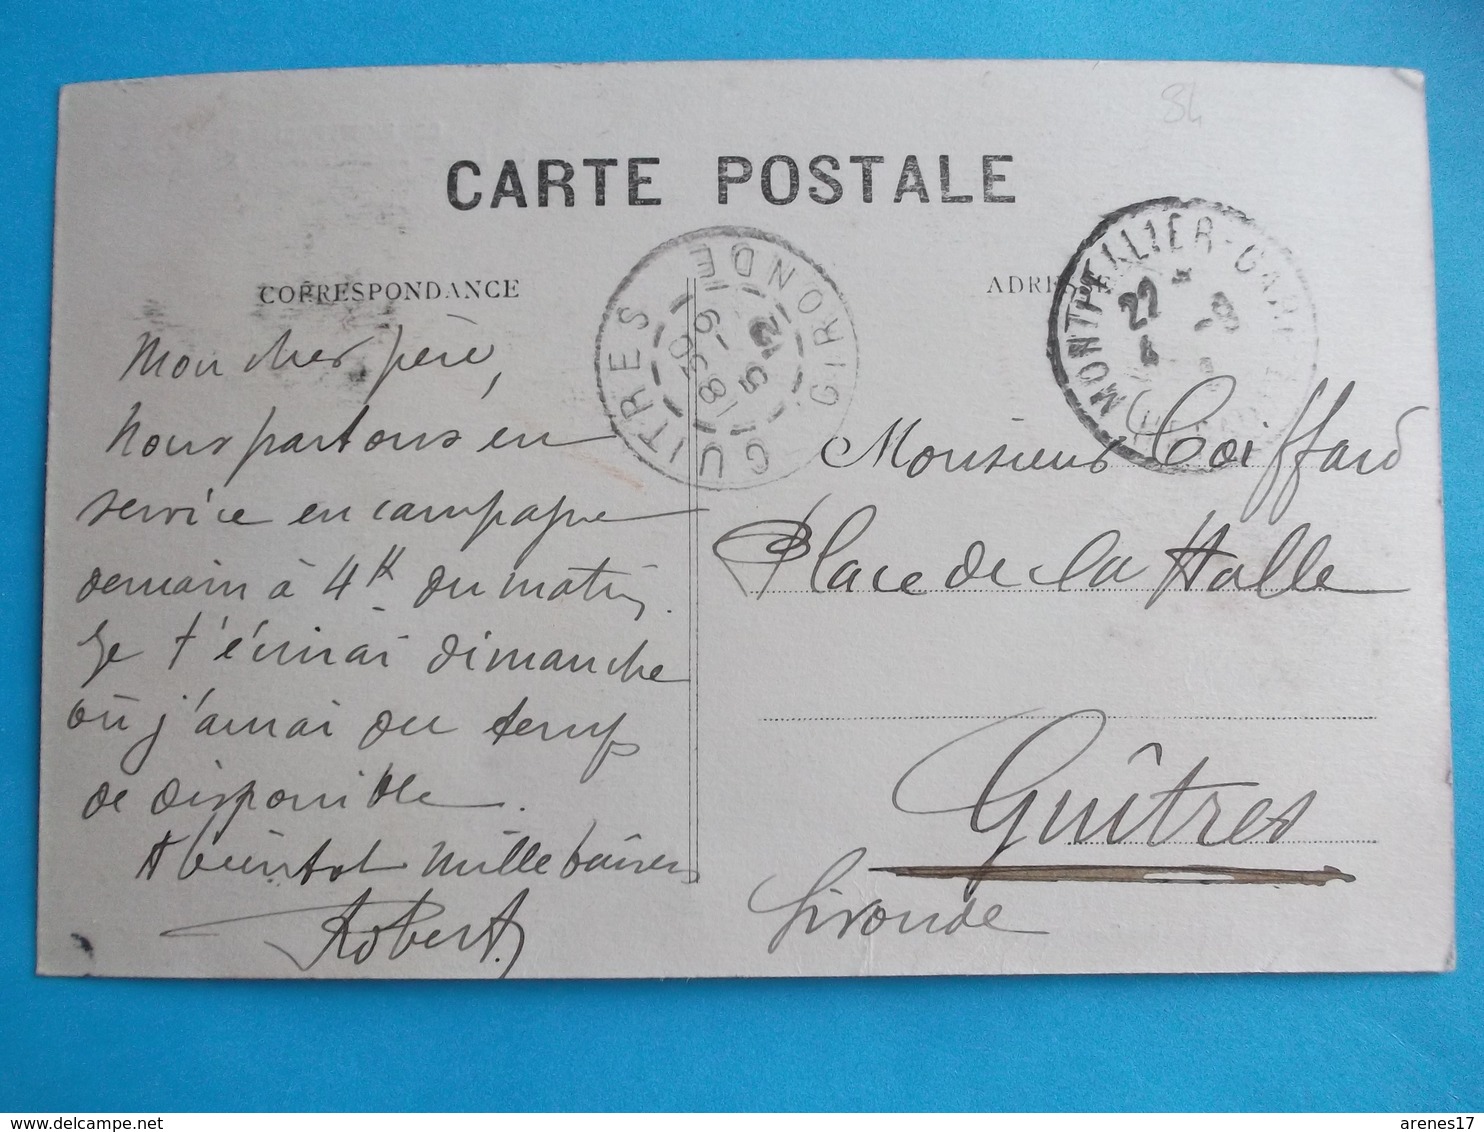 84
CARTE POSTALE
CORRESPONDANCE
ADRESSE
GUITRES GIRONDE
18 30
6-9
5 12
MONTPELLIER-GARE
22
Mon cher père,
Nous partons en
service en campagne
demain à 4h du matin,
Je t'écrirai dimanche
où j'aurai du temps
de disponible.
A bientôt mille baisers
Robert
Monsieur Coiffard
Place de la Halle
Guîtres
Gironde
arenes17